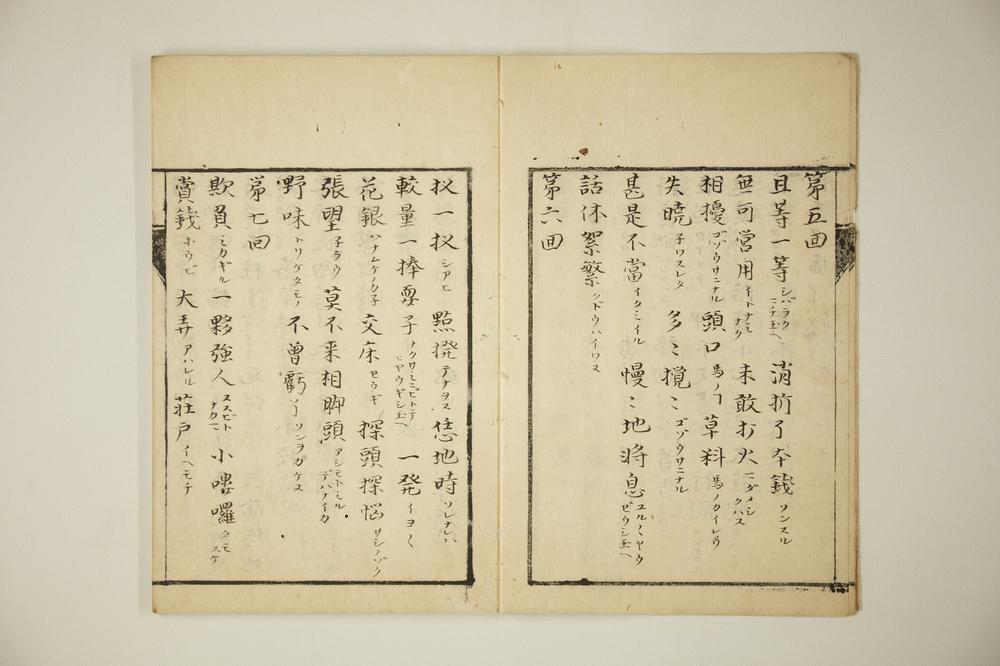 第五回
且等一等シバラクニテ玉ヘ 消折了夲錢ソンスル
無可営用イトナミナク 未敢打火ニダメシクハス
相擾ゴゾウサニナル 頭口馬ノヿ 草料馬ノカイレウ
失暁子ワスレタ 多〻攪〻ゴゾウサニナル
甚是不當イタミイル 慢〻地将息ユル〳〵ヤウゼウシ玉ヘ
話休絮繁クドウハイワヌ
第六回
㧑一㧑シアヒ 點撥テナヲス 恁地時ソレナレバ
較量一捧 耍子ナクサミニヒトテヒヤウギシ玉ヘ 一発イヨ〳〵
花銀ハナムケノカ子 交床セウギ 探頭探悩サシノゾク
張望子ラウ 莫不来相脚頭アシモトミルデハナイカ
野味トリケタモノ 不曾虧了ソンヲカケヌ
第七回
欺負ミカギル 一夥強人ヌスビトナカマ 小嘍囉クモスケ
賞銭ホウビ 大弄アハレル 荘戸イヘモチ